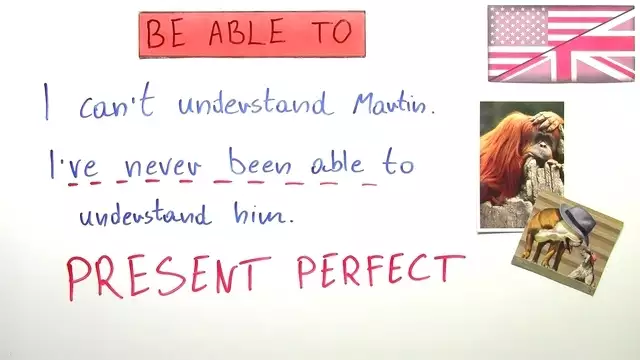 BE ABLE TO
I can't understand Martin.
I've never been able to
understand him.
PRESENT PERFECT